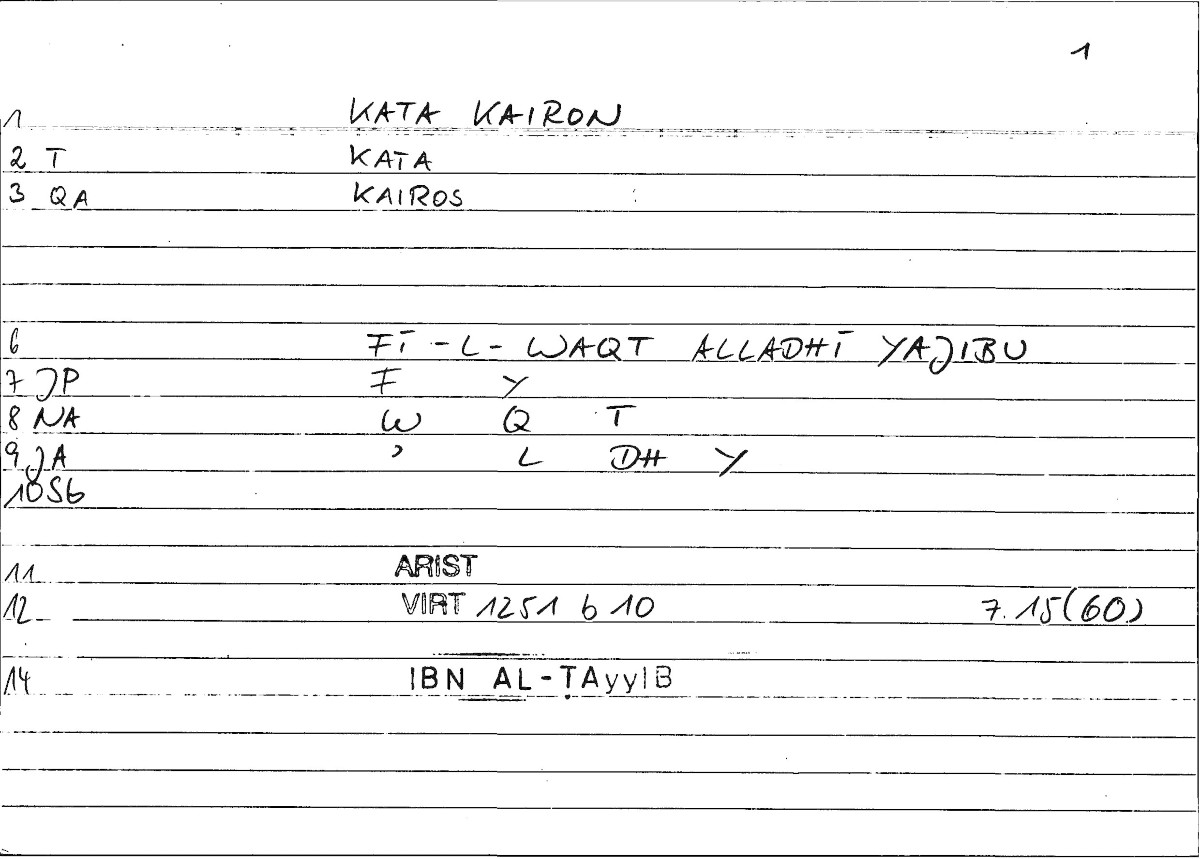 1
1 KATA KAIRON
2 T KATA
3 QA KAIROS
6 FĪ-L-WAQT ALLADHĪ YAJIBU
7 JP F Y
8 NA W Q T
9 JA ʾ L DH Y
10 SG
11 ARIST
12 VIRT 1251 b 10 7.15(60)
14 IBN AL-ṬAyyIB